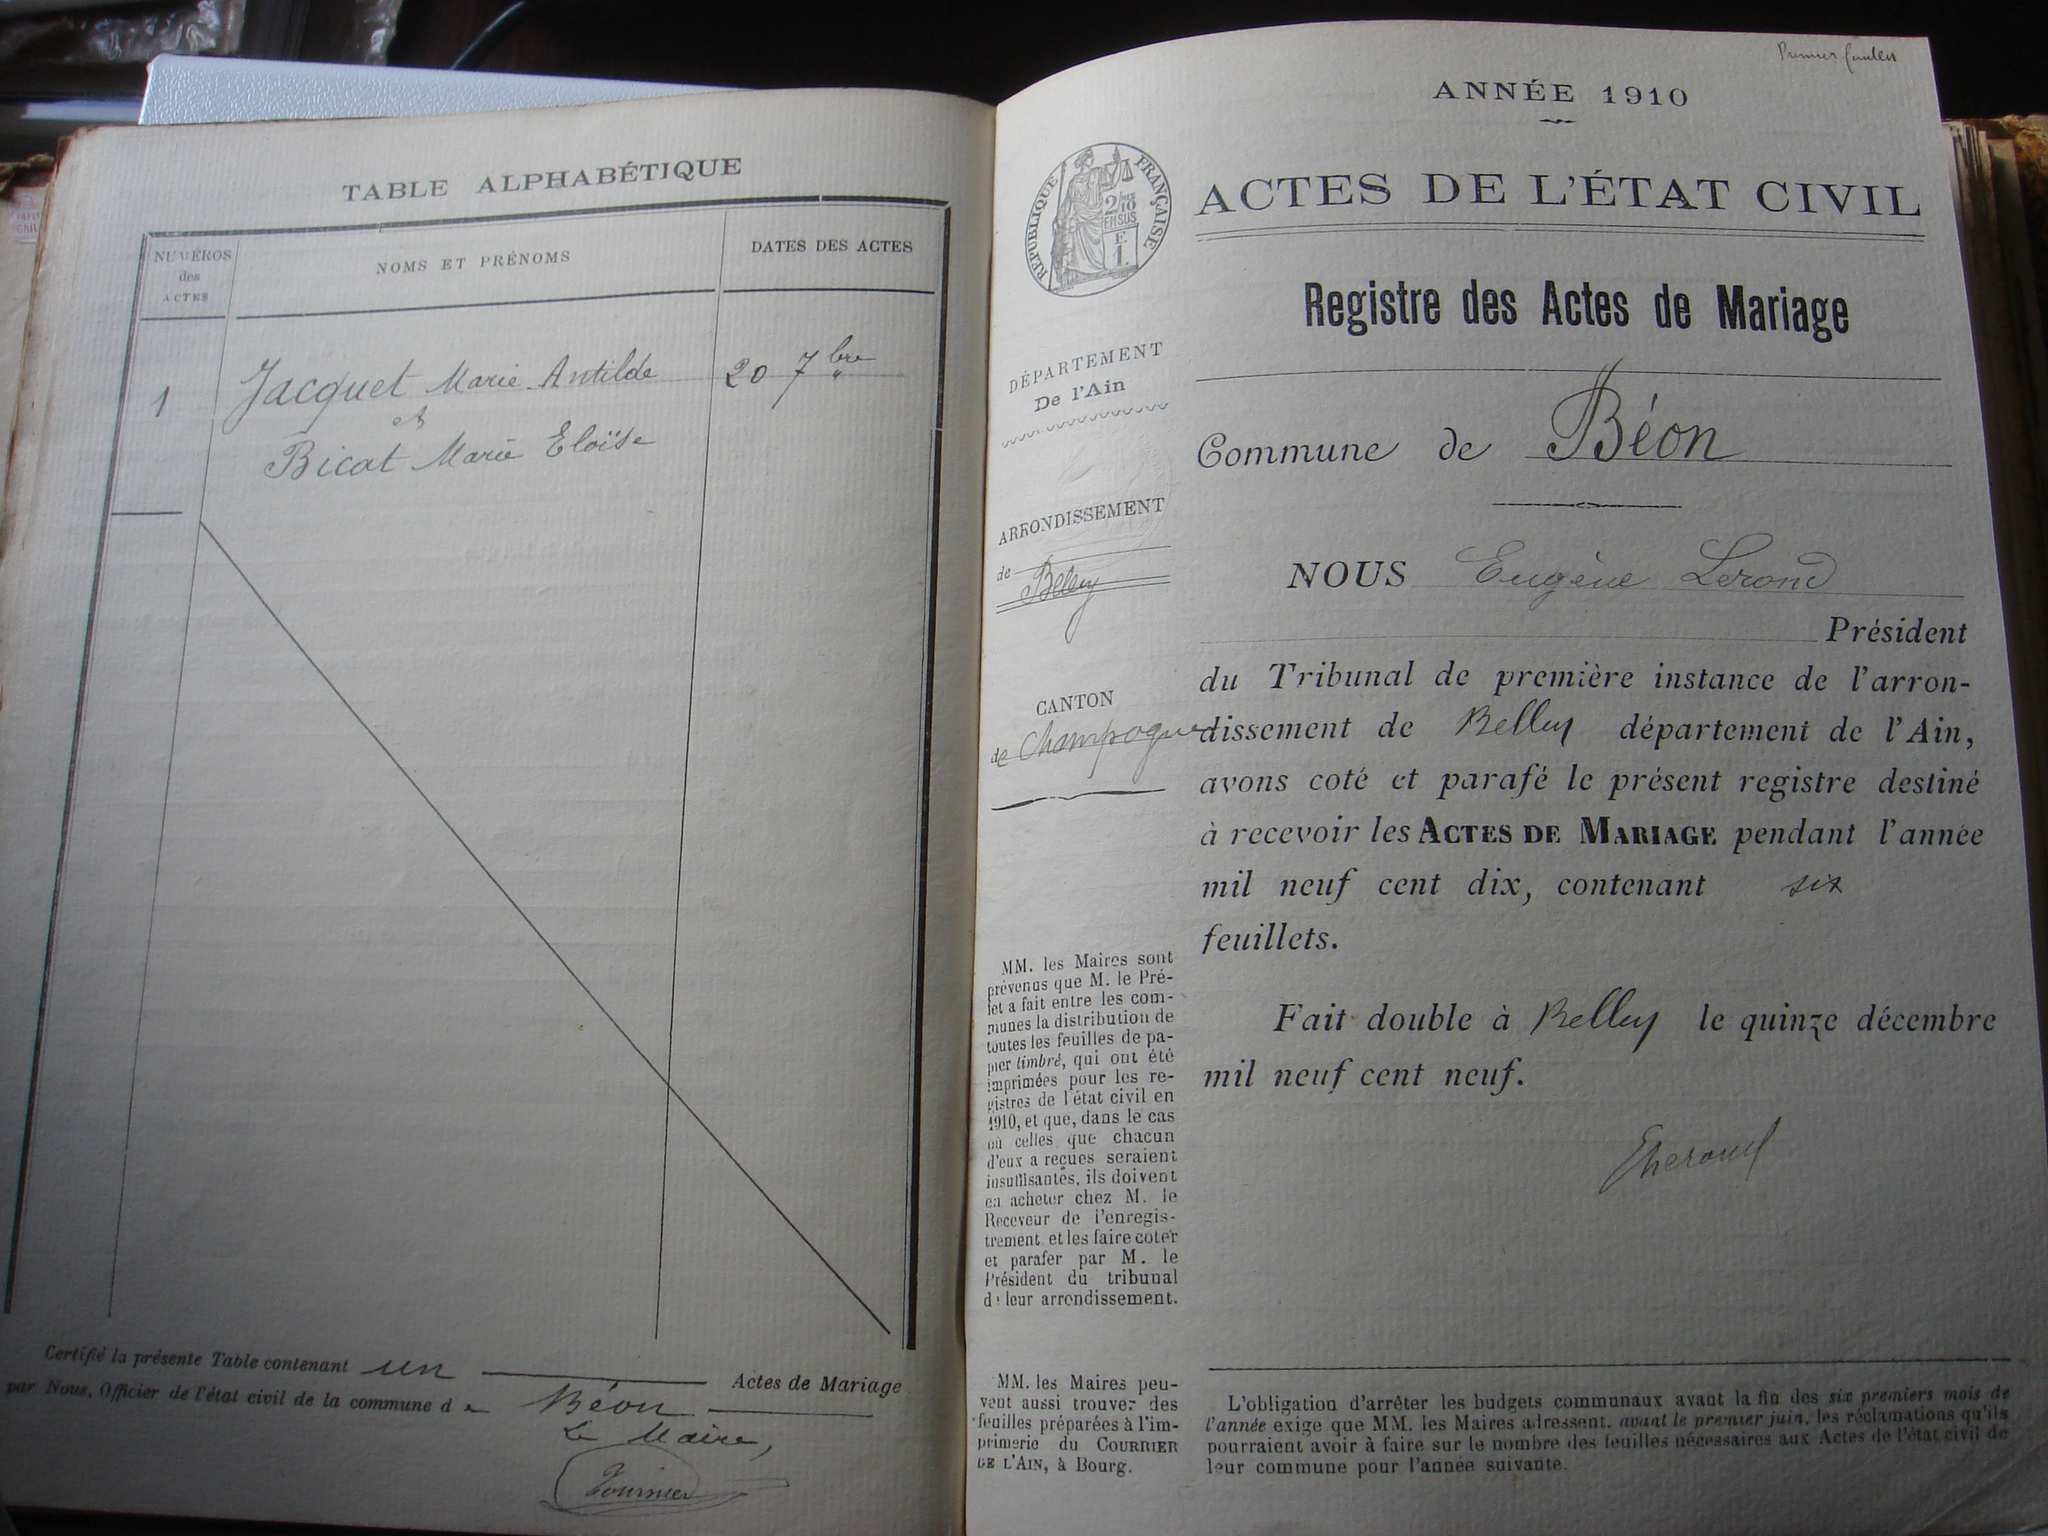 TABLE ALPHABÉTIQUE
NUMÉROS
des
ACTES
NOMS ET PRÉNOMS
DATES DES ACTES
1
Jacquet Marie Antilde
20 7bre
et
Bicat Marie Eloïse
Certifié la présente Table contenant un Actes de Mariage
par Nous, Officier de l'état civil de la commune de Béon
Le Maire,
Tournier
Premier
ANNÉE 1910
RÉPUBLIQUE FRANÇAISE
2/10
EN SUS
F.
1.
ACTES DE L'ÉTAT CIVIL
Registre des Actes de Mariage
DÉPARTEMENT
De l'Ain
ARRONDISSEMENT
de Belley
CANTON
de Champagne
MM. les Maires sont
prévenus que M. le Pré-
fet a fait entre les com-
munes la distribution de
toutes les feuilles de pa-
pier timbré, qui ont été
imprimées pour les re-
gistres de l'état civil en
1910, et que, dans le cas
où celles que chacun
d'eux a reçues seraient
insuffisantes, ils doivent
en acheter chez M. le
Receveur de l'enregis-
trement et les faire coter
et parafer par M. le
Président du tribunal
de leur arrondissement.
MM. les Maires peu-
vent aussi trouver des
feuilles préparées à l'im-
primerie du COURRIER
DE L'AIN, à Bourg.
Commune de Béon
NOUS Eugène Lerond
Président
du Tribunal de première instance de l'arron-
dissement de Belley département de l'Ain,
avons coté et parafé le présent registre destiné
à recevoir les ACTES DE MARIAGE pendant l'année
mil neuf cent dix, contenant six
feuillets.
Fait double à Belley le quinze décembre
mil neuf cent neuf.
L'obligation d'arrêter les budgets communaux avant la fin des six premiers mois de
l'année exige que MM. les Maires adressent, avant le premier juin, les réclamations qu'ils
pourraient avoir à faire sur le nombre des feuilles nécessaires aux Actes de l'état civil de
leur commune pour l'année suivante.